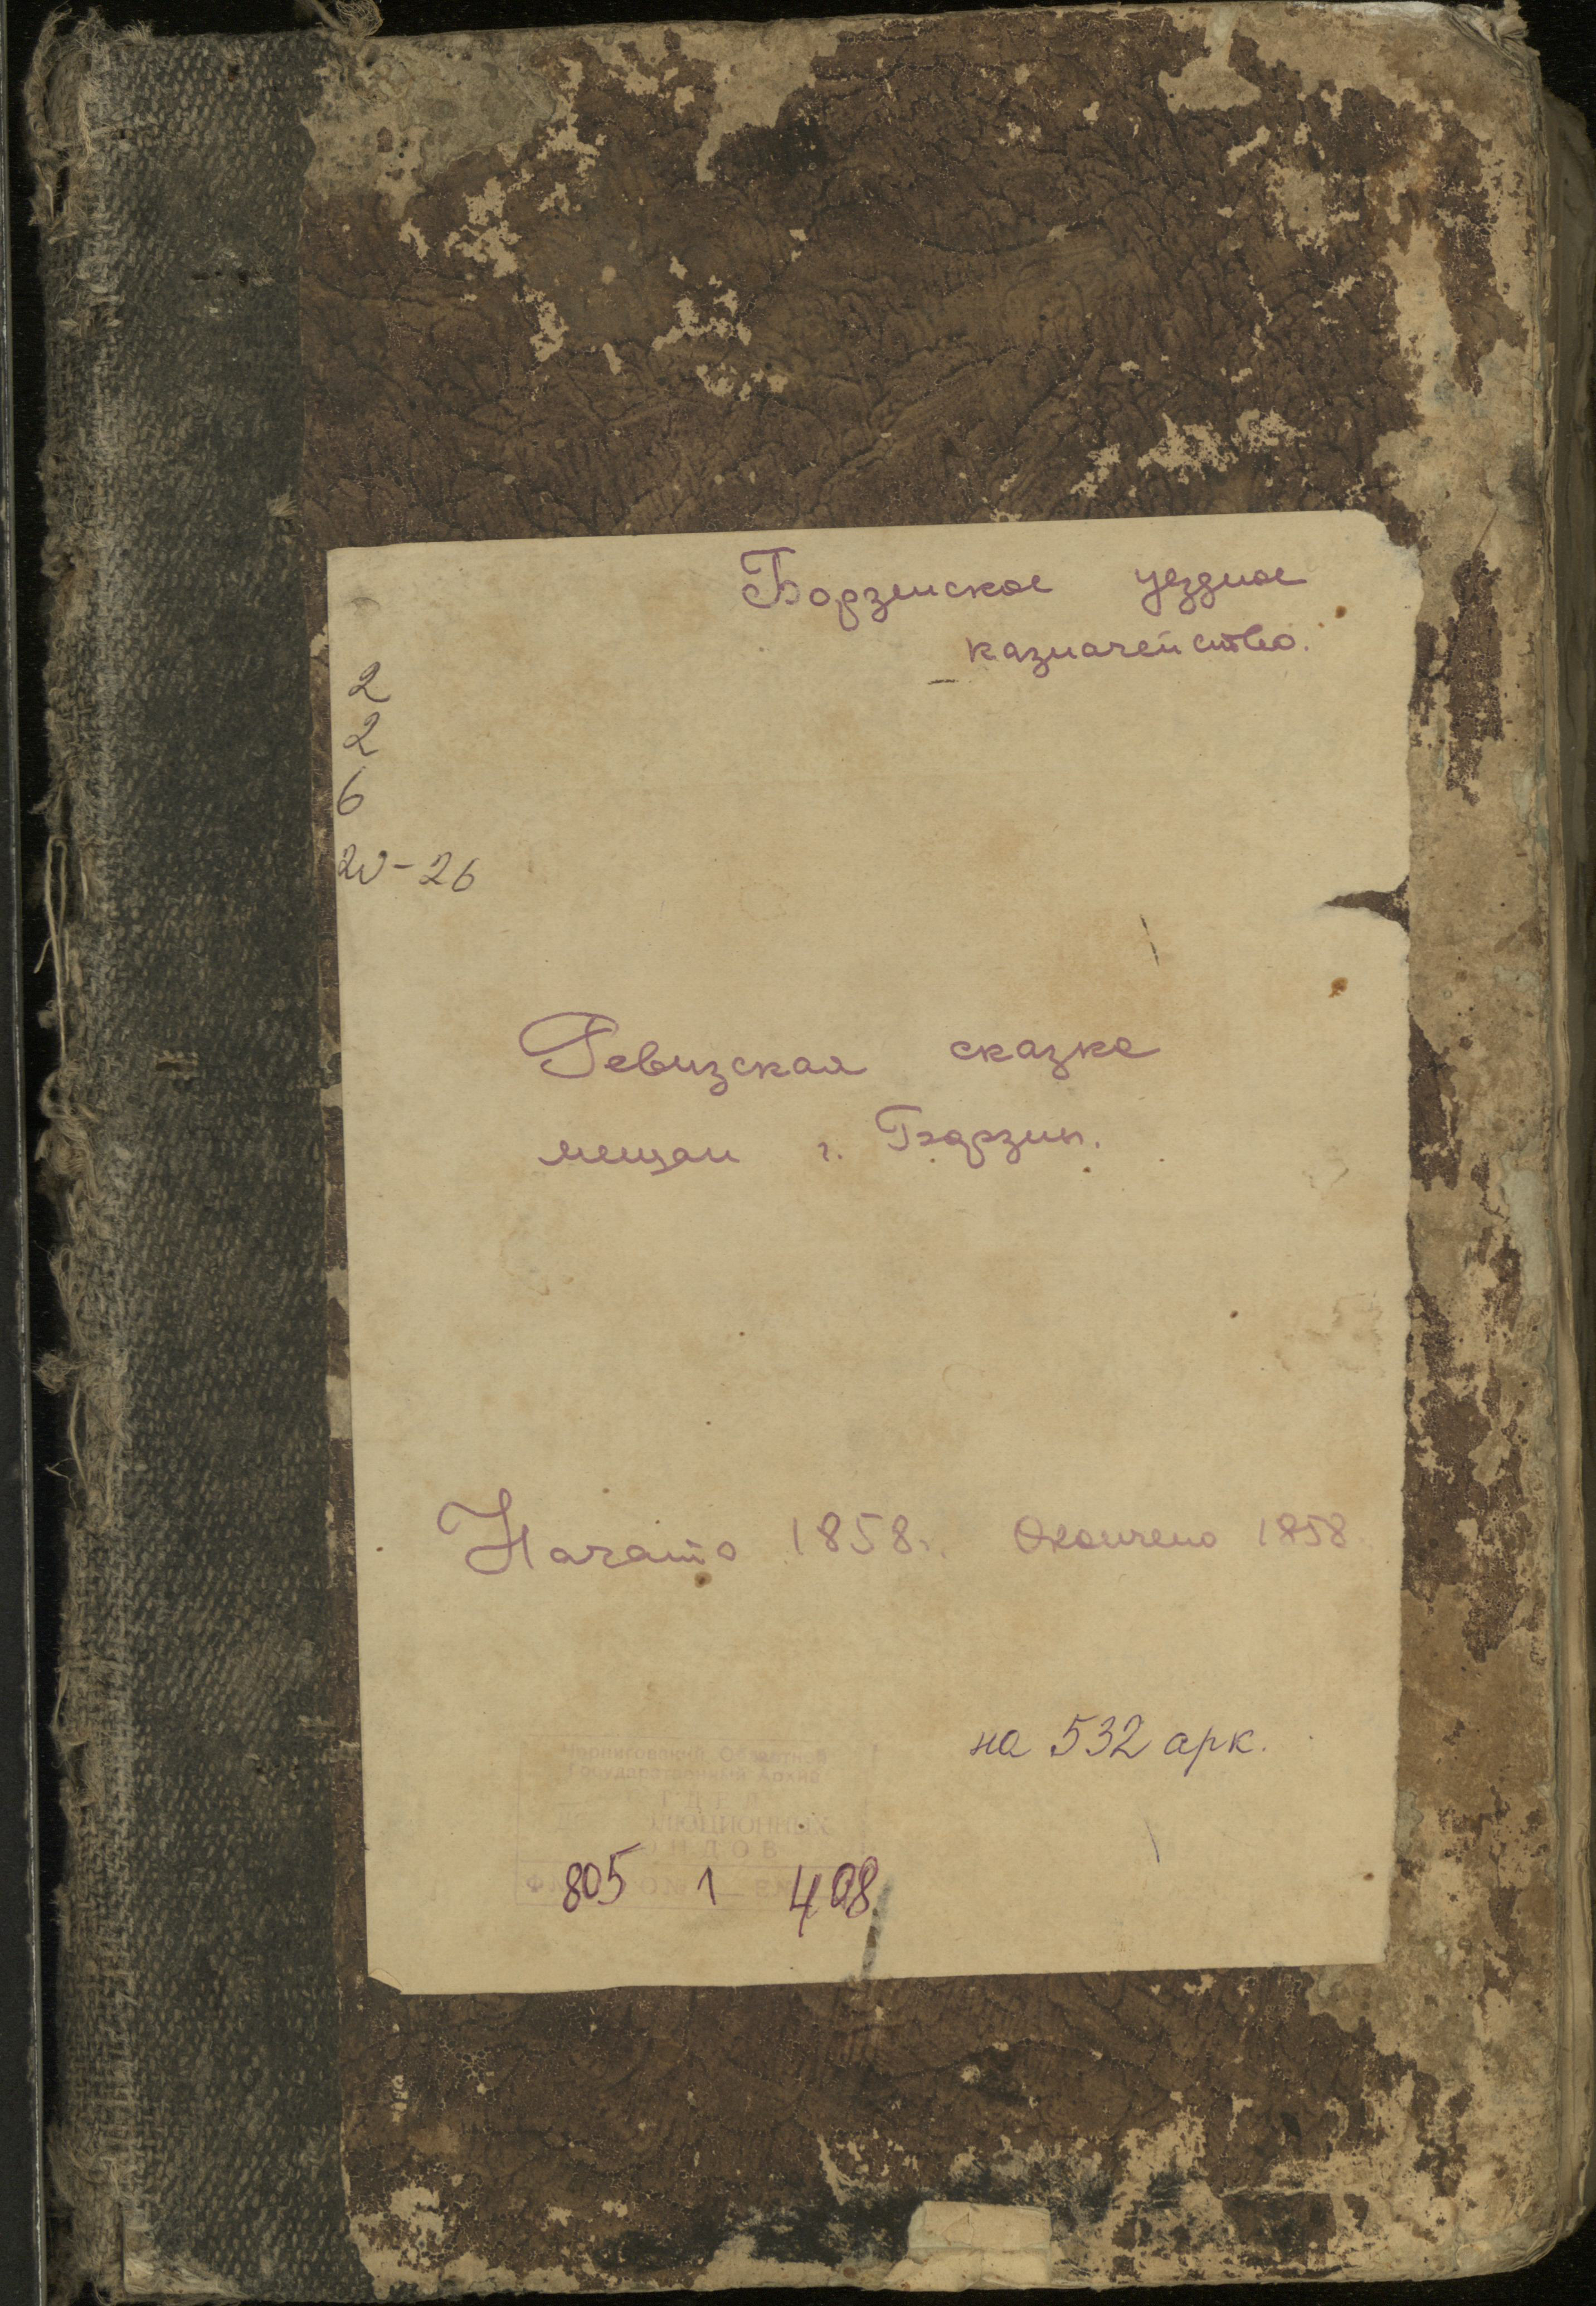 Борзенское уездное
казначейство.
2
2
6
20-26
Ревизская сказка
мещан г. Борзны.
Начато 1858г. Окончено 1858
на 532 арк.
Черниговский Областной
Государственный Архив
805 1 408